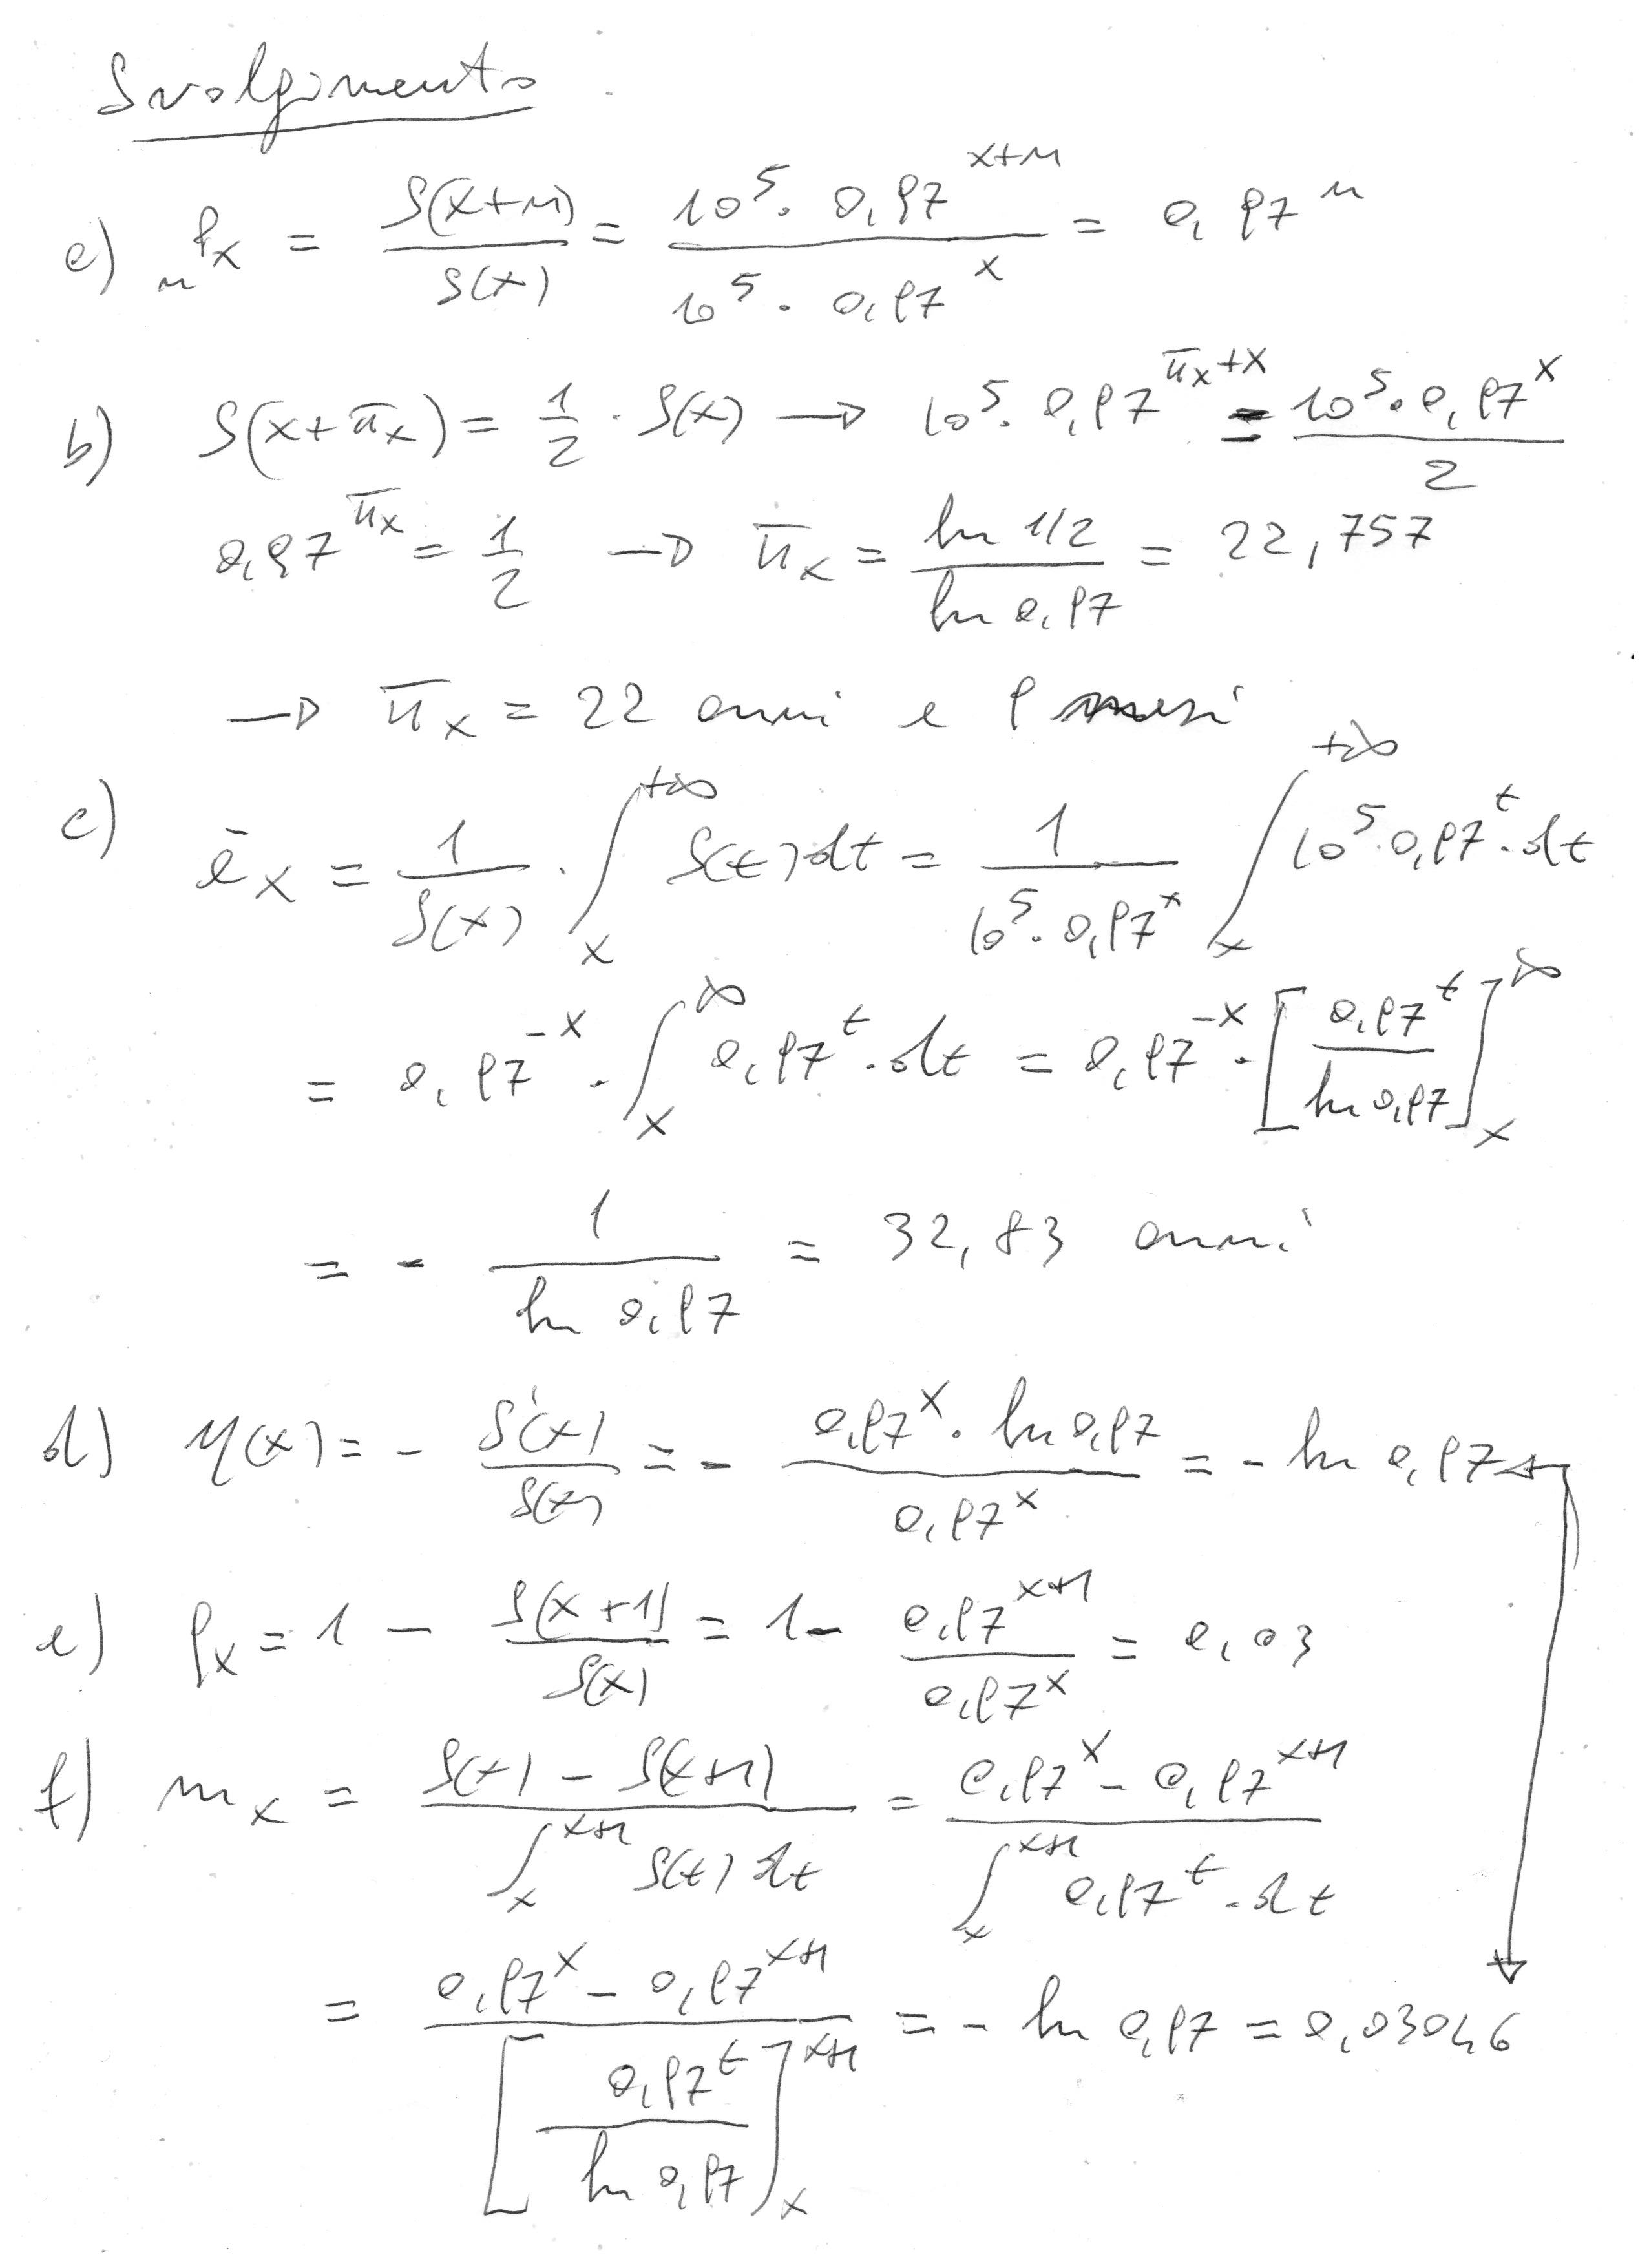 Svolgimento
a) ₙpₓ = S(x+n)/S(x) = 10⁵·0,97^(x+n) / 10⁵·0,97^x = 0,97^n
b) S(x+π̄ₓ) = 1/2 · S(x) → 10⁵·0,97^(π̄ₓ+x) = 10⁵·0,97^x / 2
0,97^π̄ₓ = 1/2 → π̄ₓ = ln 1/2 / ln 0,97 = 22,757
→ π̄ₓ = 22 anni e 9 mesi
c) ēₓ = 1/S(x) · ∫ₓ^(+∞) S(t) dt = 1/(10⁵·0,97^x) ∫ₓ^(+∞) 10⁵·0,97^t·dt
= 0,97^(-x) · ∫ₓ^∞ 0,97^t·dt = 0,97^(-x) · [0,97^t / ln 0,97]ₓ^∞
= - 1 / ln 0,97 = 32,83 anni
d) μ(x) = - S'(x)/S(x) = - 0,97^x · ln 0,97 / 0,97^x = - ln 0,97
e) qₓ = 1 - S(x+1)/S(x) = 1 - 0,97^(x+1) / 0,97^x = 0,03
f) mₓ = (S(x) - S(x+1)) / ∫ₓ^(x+1) S(t) dt = (0,97^x - 0,97^(x+1)) / ∫ₓ^(x+1) 0,97^t·dt
= (0,97^x - 0,97^(x+1)) / [0,97^t / ln 0,97]ₓ^(x+1) = - ln 0,97 = 0,03046